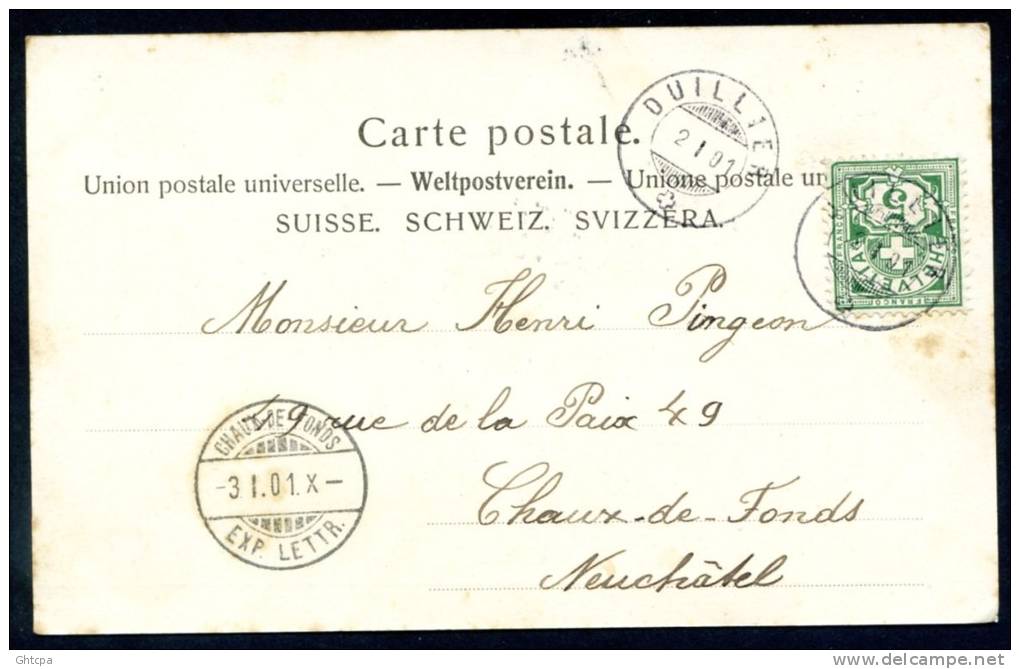 Carte postale.
Union postale universelle. — Weltpostverein. — Unione postale un
SUISSE. SCHWEIZ. SVIZZERA.
DUILLIER
2 I 01
5
HELVETIA
FRANCO
Monsieur Henri Pingeon
49 rue de la Paix 49
Chaux-de-Fonds
Neuchâtel
CHAUX-DE-FONDS
-3.I.01.X-
EXP. LETTR.
Ghtcpa
delcampe.net